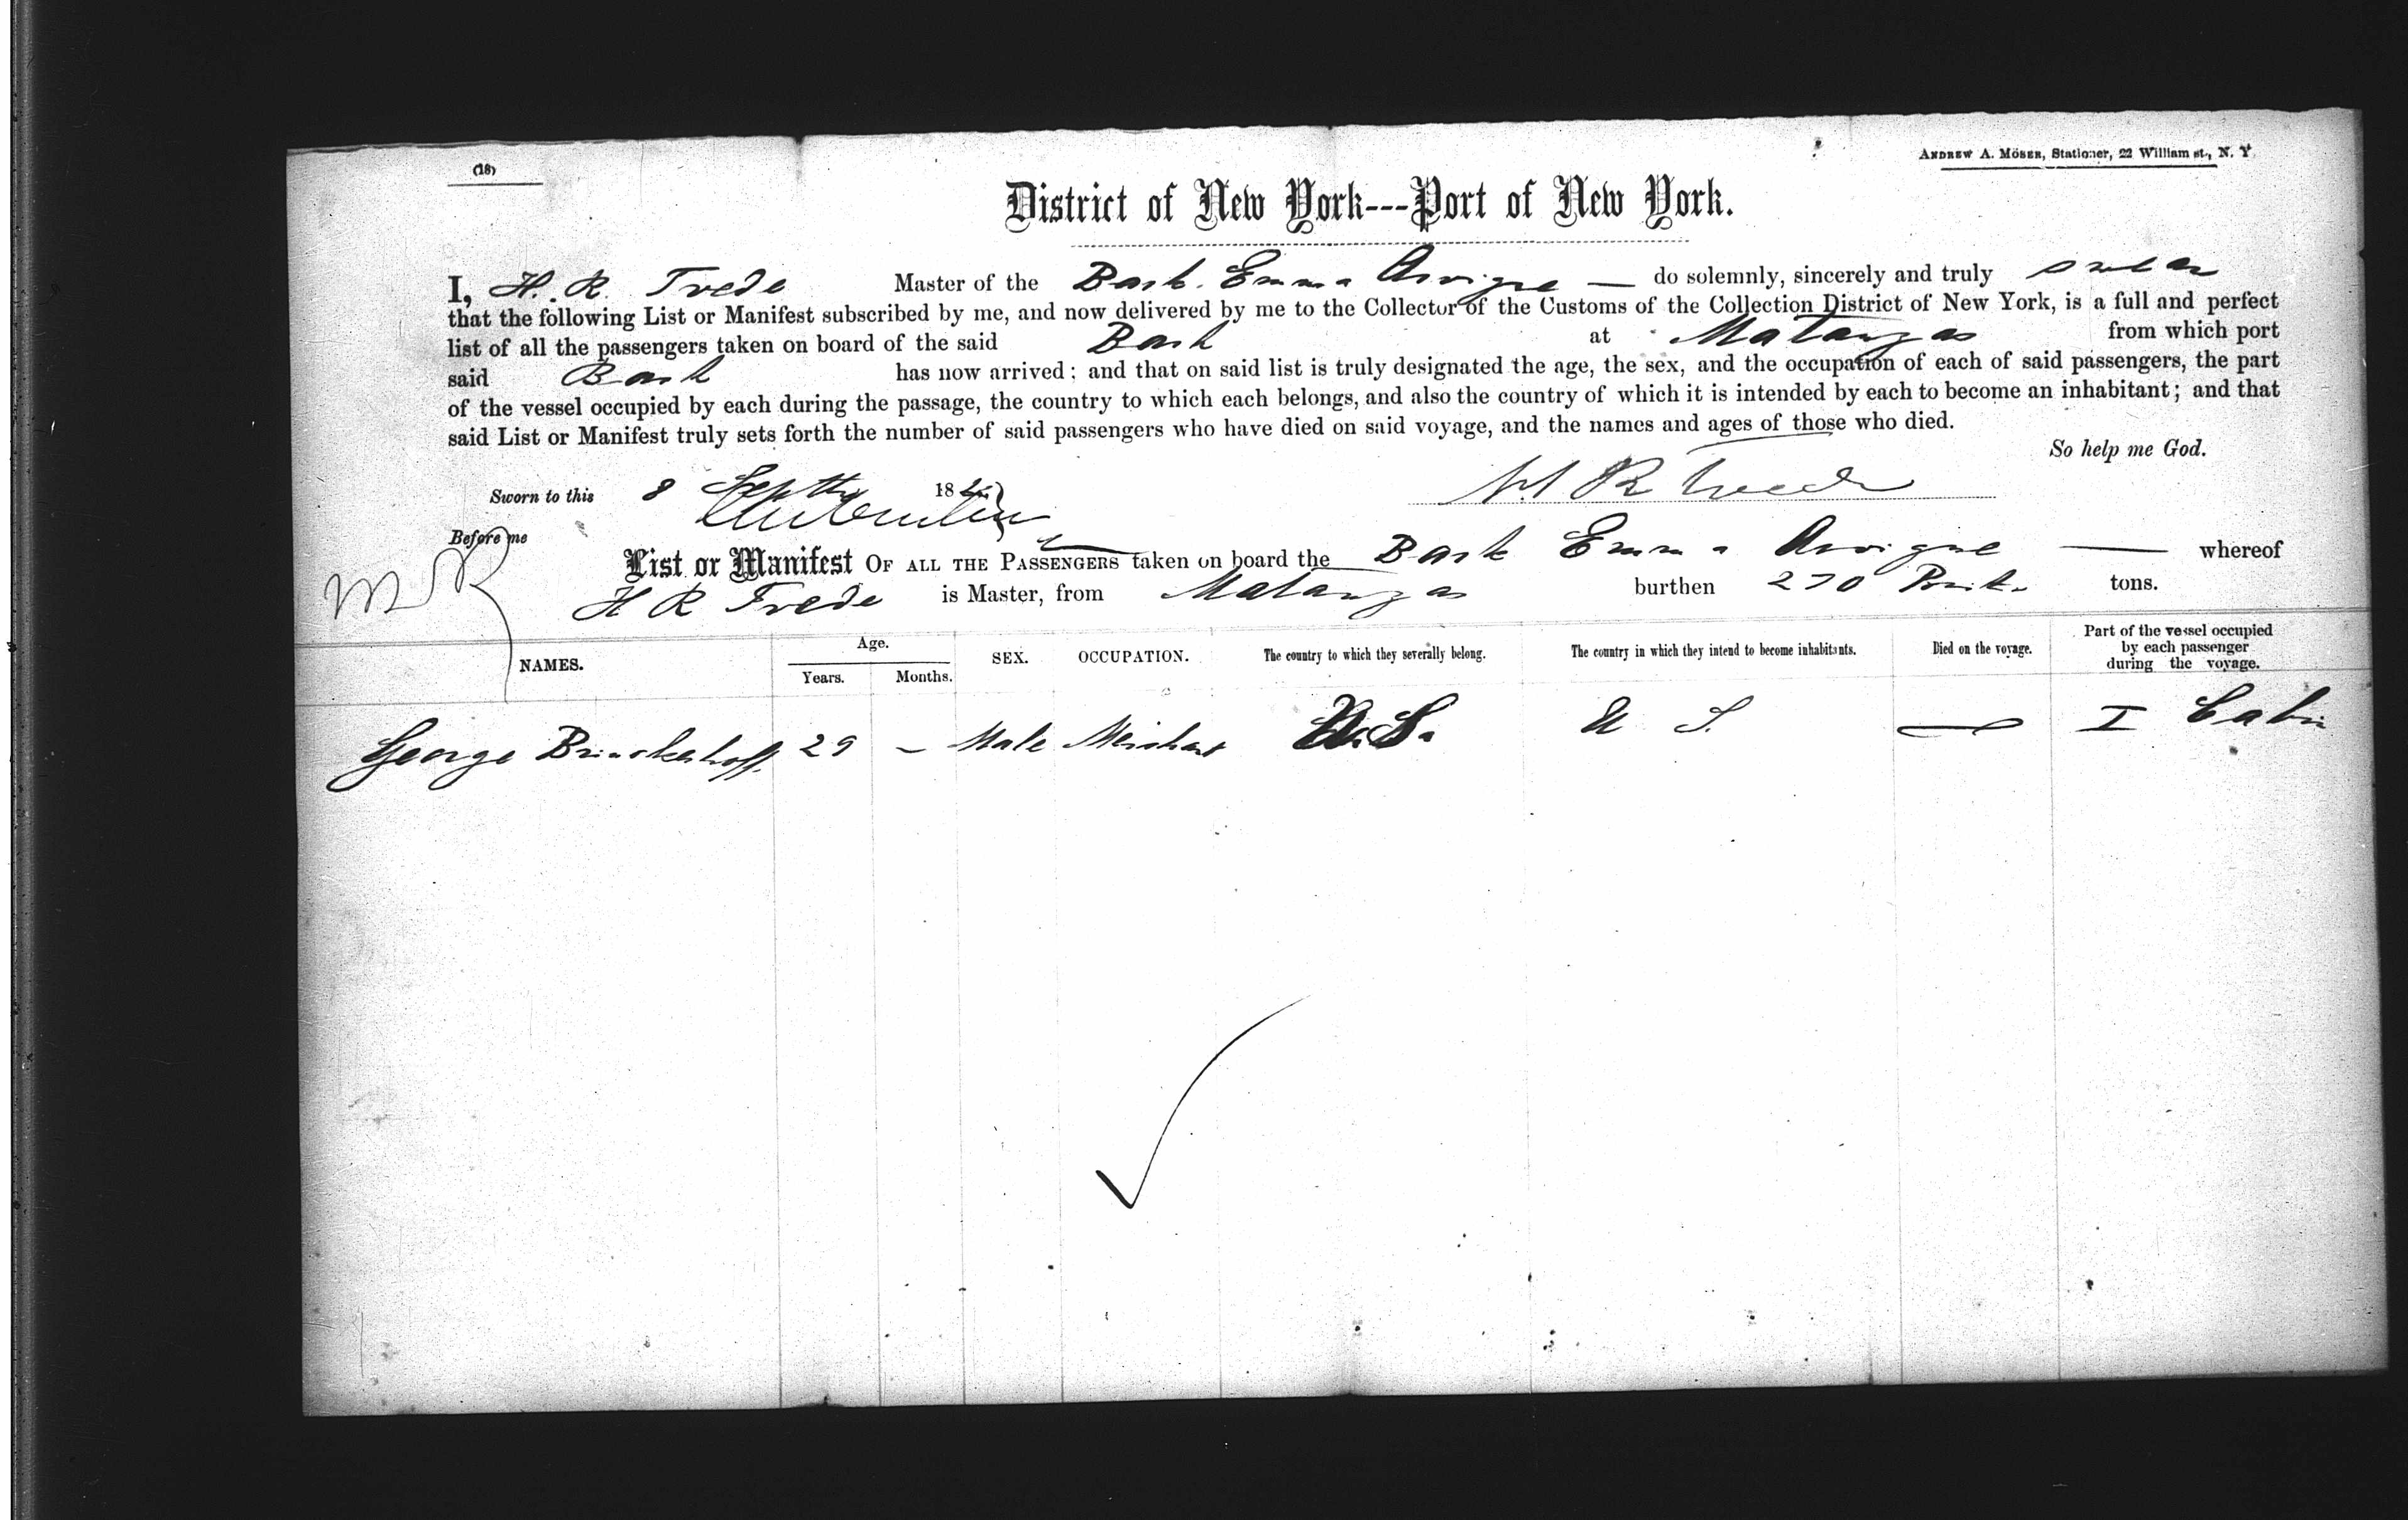 (18)
ANDREW A. MÖSER, Stationer, 22 William st., N. Y.
District of New York---Port of New York.
I, H. R. Trede Master of the Bark Emma Arvigne — do solemnly, sincerely and truly swear
that the following List or Manifest subscribed by me, and now delivered by me to the Collector of the Customs of the Collection District of New York, is a full and perfect
list of all the passengers taken on board of the said Bark at Matanzas from which port
said Bark has now arrived: and that on said list is truly designated the age, the sex, and the occupation of each of said passengers, the part
of the vessel occupied by each during the passage, the country to which each belongs, and also the country of which it is intended by each to become an inhabitant; and that
said List or Manifest truly sets forth the number of said passengers who have died on said voyage, and the names and ages of those who died.
So help me God.
Sworn to this 8 Septbr 18
H R Trede
Before me
List or Manifest OF ALL THE PASSENGERS taken on board the Bark Emma Arvigne — whereof
H R Trede is Master, from Matanzas burthen 270 tons.
NAMES. Age. Years. Months. SEX. OCCUPATION. The country to which they severally belong. The country in which they intend to become inhabitants. Died on the voyage. Part of the vessel occupied by each passenger during the voyage.
George Brinckerhoff. 29 – Male Merchant U.S. U S. — I Cabin